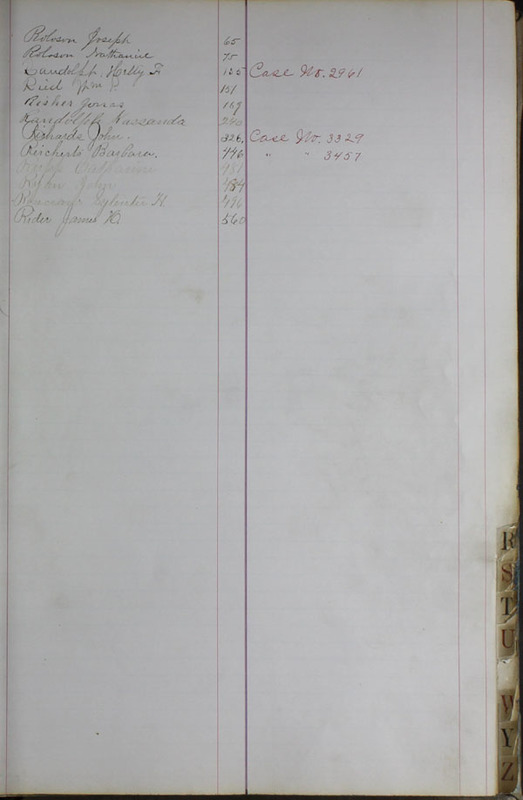 Roloson Joseph 65
Roloson Nathaniel 75
Randolph, Hilly F 125 Case No. 2961
Ried Wm 151
Resher Jonas 169
Randolph Kassanda 240
Richards John. 326. Case No. 3329
Reicherts Barbara. 446 " " 3457
481
John 484
H. 496
Rider James H. 560
R
S
T
U
W
Y
Z